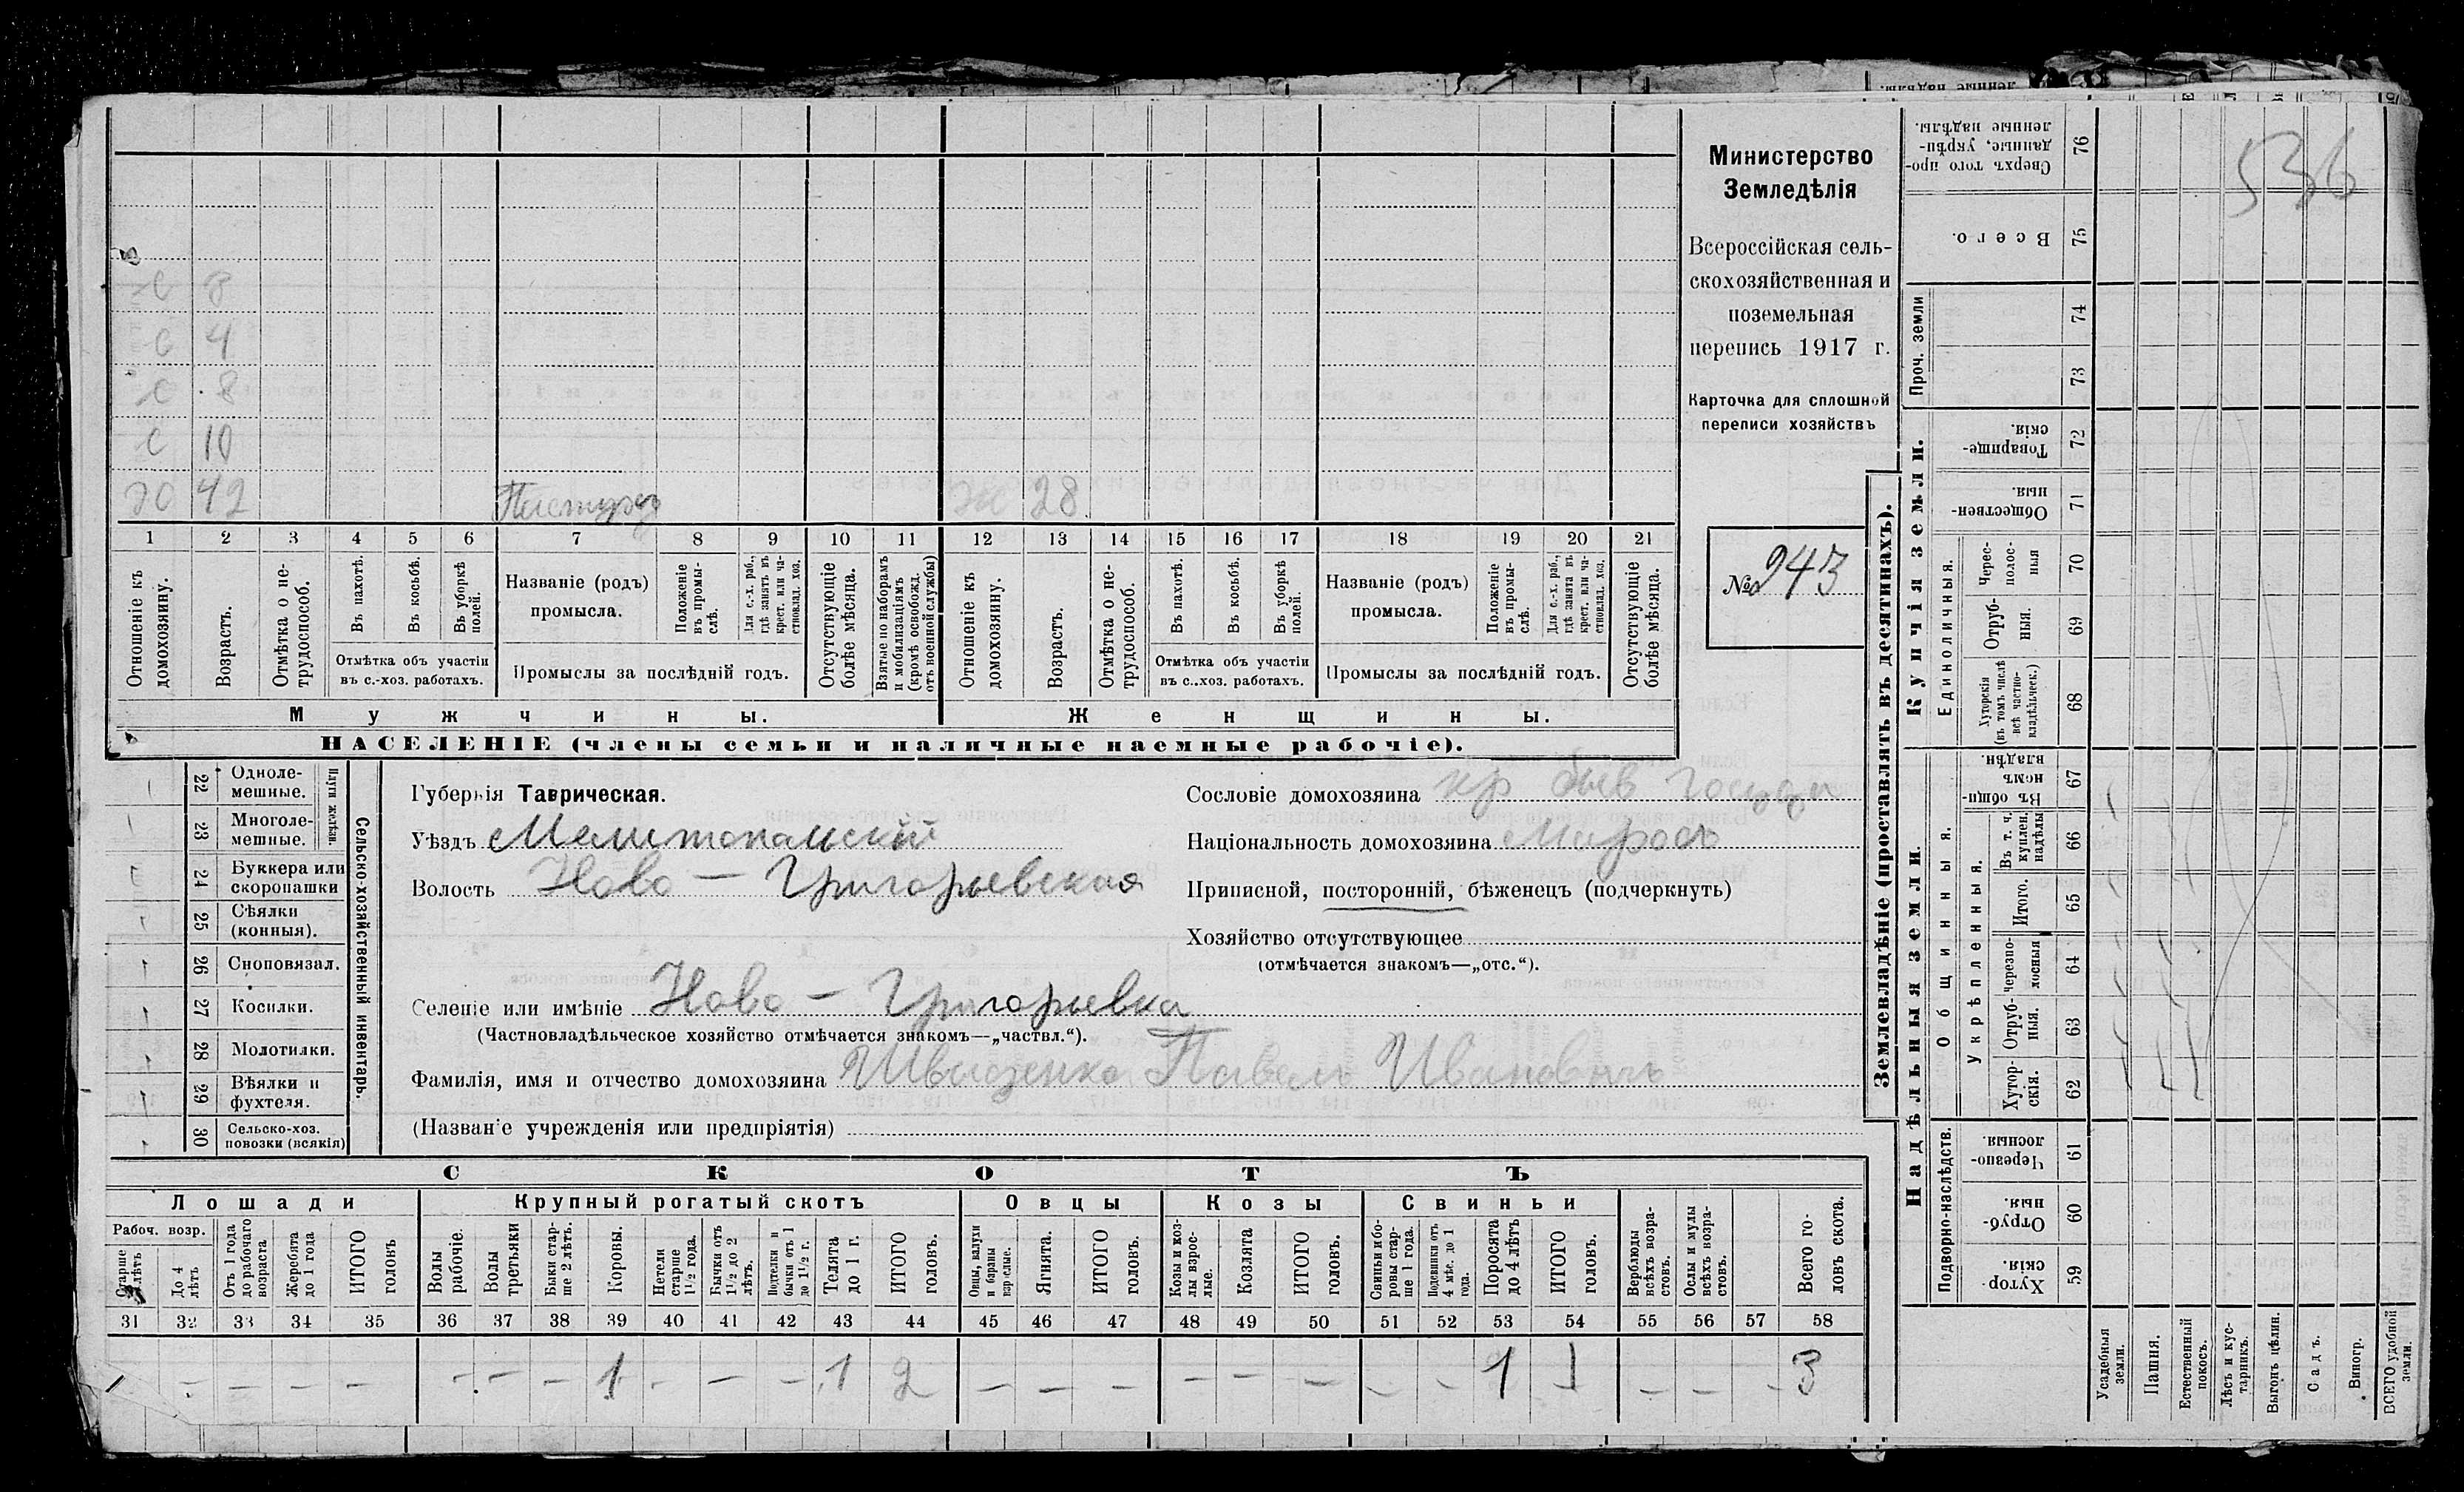 536
Министерство
Земледѣлія
Всероссійская сель-
скохозяйственная и
поземельная
перепись 1917 г.
Карточка для сплошной
переписи хозяйствъ
№ 243
С 8
С 4
С 8
С 10
ДО 42
Ж 28
1 2 3 4 5 6 7 8 9 10 11 12 13 14 15 16 17 18 19 20 21
Отношеніе къ домохозяину.
Возрастъ.
Отмѣтка о не-трудоспособ.
Въ пахотѣ.
Въ косьбѣ.
Въ уборкѣ полей.
Отмѣтка объ участіи
въ с.-хоз. работахъ.
Названіе (родъ)
промысла.
Положеніе въ промы-слѣ.
Для с.-х. раб., гдѣ занятъ въ крест. или ча-стновлад. хоз.
Промыслы за послѣдній годъ.
Отсутствующіе болѣе мѣсяца.
Взятые по наборамъ и мобилизаціямъ (кромѣ освобожд. отъ военной службы)
Отношеніе къ домохозяину.
Возрастъ.
Отмѣтка о не-трудоспособ.
Въ пахотѣ.
Въ косьбѣ.
Въ уборкѣ полей.
Отмѣтка объ участіи
въ с..хоз. работахъ.
Названіе (родъ)
промысла.
Положеніе въ промы-слѣ.
Для с.-х. раб., гдѣ занята въ крест. или ча-стновлад. хоз.
Промыслы за послѣдній годъ.
Отсутствующіе болѣе мѣсяца.
Мужчины.
Женщины.
НАСЕЛЕНІЕ (члены семьи и наличные наемные рабочіе).
Сельско-хозяйственный инвентарь.
Плуги желѣзн.
22 Одноле-мешные.
23 Многоле-мешные.
24 Буккера или скоропашки
25 Сѣялки (конныя).
26 Сноповязал.
27 Косилки.
28 Молотилки.
29 Вѣялки и фухтеля.
30 Сельско-хоз. повозки (всякія)
Губернія Таврическая.
Уѣздъ Мелитопольскій
Волость Ново-Григорьевская
Селеніе или имѣніе Ново-Григорьевка
(Частновладѣльческое хозяйство отмѣчается знакомъ—„частвл.“).
Фамилія, имя и отчество домохозяина Павелъ Ивановичъ
(Названіе учрежденія или предпріятія)
Сословіе домохозяина кр быв
Національность домохозяина Малрос
Приписной, посторонній, бѣженецъ (подчеркнуть)
Хозяйство отсутствующее
(отмѣчается знакомъ—„отс.“).
СКОТЪ
Лошади
Крупный рогатый скотъ
Овцы
Козы
Свиньи
Рабоч. возр.
Старше 4 лѣтъ
До 4 лѣтъ
Отъ 1 года до рабочаго возраста
Жеребята до 1 года
ИТОГО головъ
Волы рабочіе.
Волы третьяки
Быки стар-ше 2 лѣтъ.
Коровы.
Нетели старше 1½ года.
Бычки отъ 1½ до 2 лѣтъ.
Подтелки и бычки отъ 1 до 1½ г.
Телята до 1 г.
ИТОГО головъ.
Овцы, валухи и бараны взрослые.
Ягнята.
ИТОГО головъ.
Козы и коз-лы взрос-лые.
Козлята
ИТОГО головъ.
Свиньи и бо-ровы стар-ше 1 года.
Подсвинки отъ 4 мѣс. до 1 года.
Поросята до 4 лѣтъ
ИТОГО головъ.
Верблюды всѣхъ возра-стовъ.
Ослы и мулы всѣхъ возра-стовъ.
Всего го-ловъ скота.
31 32 33 34 35 36 37 38 39 40 41 42 43 44 45 46 47 48 49 50 51 52 53 54 55 56 57 58
– – – – – – – 1 – – – 1 2 – – – – – – – – 1 1 – – – 3
Землевладѣніе (проставлять въ десятинахъ).
Купчія земли.
Надѣльныя земли.
Сверхъ того про-данные, укрѣп-ленные надѣлы. 76
Всего. 75
Проч. земли 74 73
Товарище-скія. 72
Обществен-ныя. 71
Единоличныя.
Черес-полос-ныя 70
Отруб-ныя. 69
Хуторскія (въ томъ числѣ всѣ частно-владѣльческ.) 68
Общинныя.
Въ общи-номъ владѣн. 67
Укрѣпленныя.
Въ т. ч. куплен. надѣлы 66
Итого. 65
Черезпо-лосныя 64
Отруб-ныя. 63
Хутор-скія. 62
Подворно-наслѣдств.
Черезпо-лосныя. 61
Отруб-ныя. 60
Хутор-скія. 59
Усадебныя земли.
Пашня.
Естественный покосъ.
Лѣсъ и кус-тарникъ.
Выгонъ цѣлин.
Садъ.
Виногр.
ВСЕГО удобной земли.